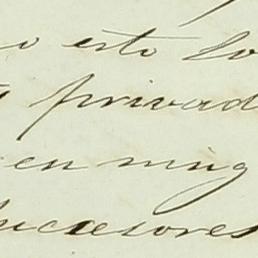 o esto lo
privad
en ning
sucesores